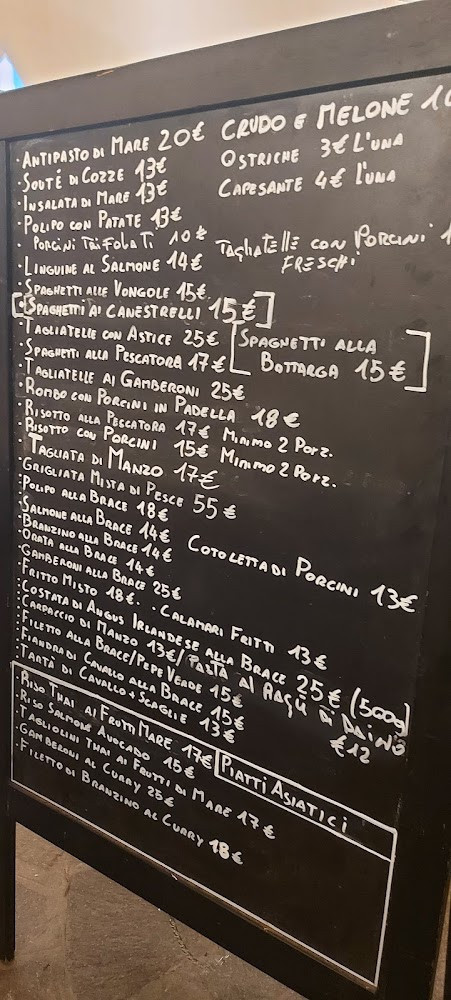 · ANTIPASTO DI MARE 20€
CRUDO E MELONE
· SOUTÉ DI COZZE 13€
OSTRICHE 3€ L'UNA
· INSALATA DI MARE 13€
CAPESANTE 4€ L'UNA
· POLIPO CON PATATE 13€
· PORCINI TRIFOLATI 10€
TAGLIATELLE CON PORCINI
FRESCHI
· LINGUINE AL SALMONE 14€
· SPAGHETTI ALLE VONGOLE 15€
[· SPAGHETTI AI CANESTRELLI 15€]
· TAGLIATELLE CON ASTICE 25€
[SPAGHETTI ALLA
BOTTARGA 15€]
· SPAGHETTI ALLA PESCATORA 17€
· TAGLIATELLE AI GAMBERONI 25€
· ROMBO CON PORCINI IN PADELLA 18€
· RISOTTO ALLA PESCATORA 17€ MINIMO 2 PORZ.
· RISOTTO CON PORCINI 15€ MINIMO 2 PORZ.
· TAGLIATA DI MANZO 17€
· GRIGLIATA MISTA DI PESCE 55€
· POLIPO ALLA BRACE 18€
· SALMONE ALLA BRACE 14€
COTOLETTA DI PORCINI 13€
· BRANZINO ALLA BRACE 14€
· ORATA ALLA BRACE 14€
· GAMBERONI ALLA BRACE 25€
· FRITTO MISTO 18€. · CALAMARI FRITTI 13€
· COSTATA DI ANGUS IRLANDESE ALLA BRACE 25€ (500g)
· CARPACCIO DI MANZO 13€/ PASTA AL RAGÙ DI DAINO
€12
· FILETTO ALLA BRACE/PEPE VERDE 15€
· FIANDRA DI CAVALLO ALLA BRACE 15€
· TARTÀ DI CAVALLO + SCAGLIE 13€
PIATTI ASIATICI
· RISO THAI AI FRUTTI MARE 17€
· RISO SALMONE AVOCADO 15€
· TAGLIOLINI THAI AI FRUTTI DI MARE 17€
· GAMBERONI AL CURRY 25€
· FILETTO DI BRANZINO AL CURRY 18€